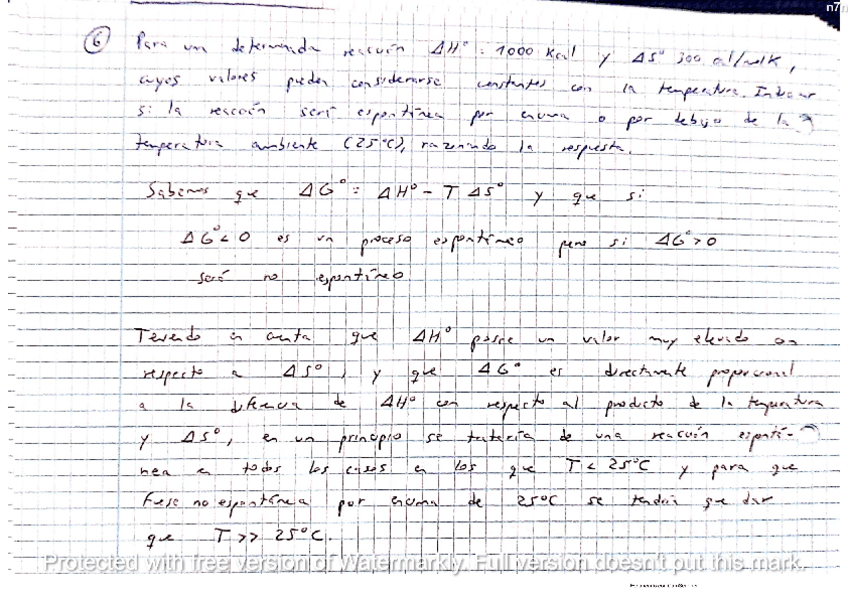 n7
6 Para una determinada reacción ΔH° = 1000 Kcal y ΔS° 300 cal/molK,
cuyos valores pueden considerarse constantes con la temperatura. Indicar
si la reacción será espontánea por encima o por debajo de la
temperatura ambiente (25°C), razonando la respuesta.
Sabemos que ΔG° = ΔH° - T ΔS° y que si
ΔG° < 0 es un proceso espontáneo pero si ΔG° > 0
será no espontáneo
Teniendo en cuenta que ΔH° posee un valor muy elevado con
respecto a ΔS°, y que ΔG° es directamente proporcional
a la diferencia de ΔH° con respecto al producto de la temperatura
y ΔS°, en un principio se trataría de una reacción espontá-
nea en todos los casos en los que T < 25°C y para que
fuese no espontánea por encima de 25°C se tendría que dar
que T >> 25°C.
Protected with free version of Watermarkly. Full version doesn't put this mark.